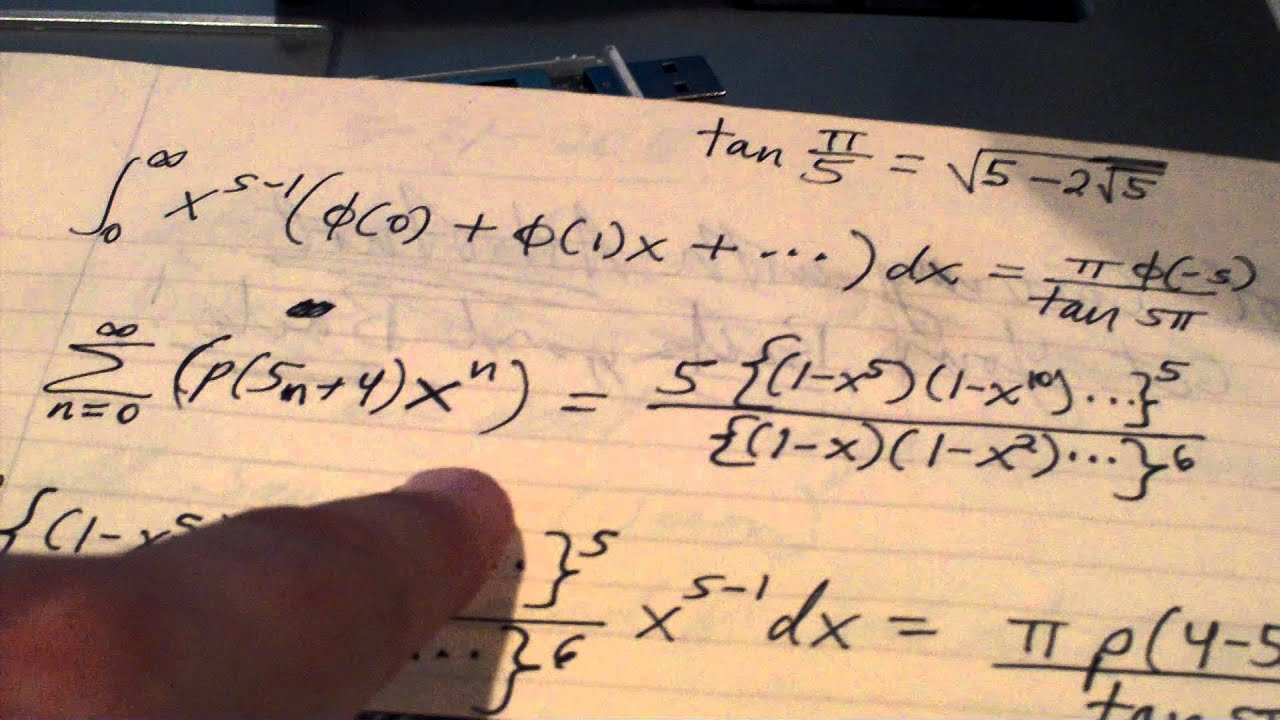 tan π/5 = √(5 − 2√5)
∫₀^∞ x^(s−1) (φ(0) + φ(1)x + ⋯) dx = π φ(−s) / tan sπ
∑_{n=0}^∞ (p(5n+4)x^n) = 5 {(1−x^5)(1−x^10) ⋯}^5 / {(1−x)(1−x^2) ⋯}^6
{(1−x^5 ⋯}^5 / ⋯}^6 x^(s−1) dx = π p(4−5 / tan